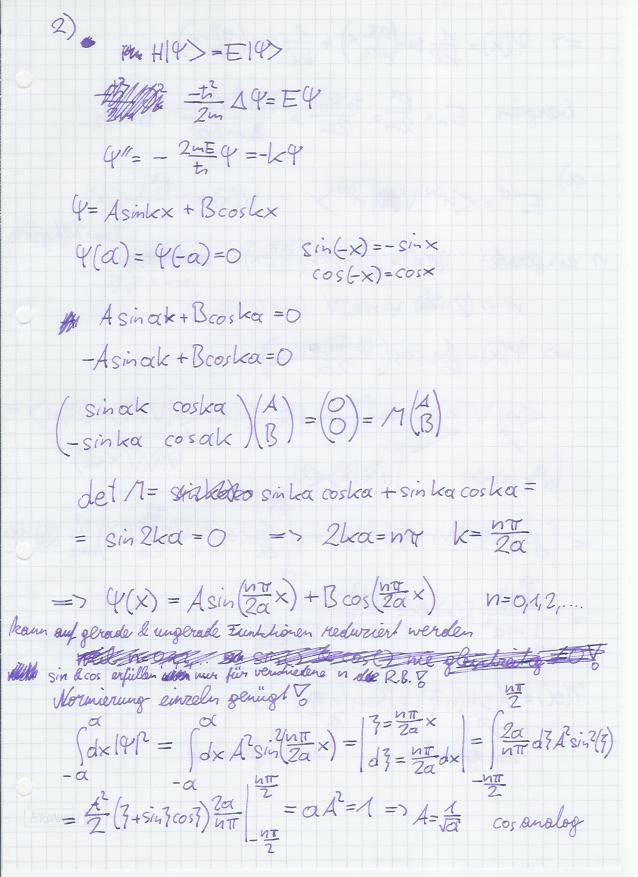 2)
H|Ψ> = E|Ψ>
-ħ²/2m ΔΨ = EΨ
Ψ'' = - 2mE/ħ Ψ = -kΨ
Ψ = A sinkx + B coskx
Ψ(a) = Ψ(-a) = 0 sin(-x) = -sinx
cos(-x) = cosx
A sinak + B coska = 0
-A sinak + B coska = 0
( sinak coska ) (A) = (0) = M (A)
( -sinka cosak ) (B) (0) (B)
det M = sinka coska + sinka coska =
= sin2ka = 0 => 2ka = nπ k = nπ/2a
=> Ψ(x) = A sin(nπ/2a x) + B cos(nπ/2a x) n = 0,1,2,....
kann auf gerade & ungerade Funktionen reduziert werden
sin & cos erfüllen nur für verschiedene n die R.B.!
Normierung einzeln genügt!
∫_{-a}^{a} dx |Ψ|² = ∫_{-a}^{a} dx A² sin²(nπ/2a x) = | ξ = nπ/2a x, dξ = nπ/2a dx | = ∫_{-nπ/2}^{nπ/2} 2a/nπ dξ A² sin²(ξ)
= A²/2 (ξ + sinξ cosξ) 2a/nπ |_{-nπ/2}^{nπ/2} = aA² = 1 => A = 1/√a cos analog